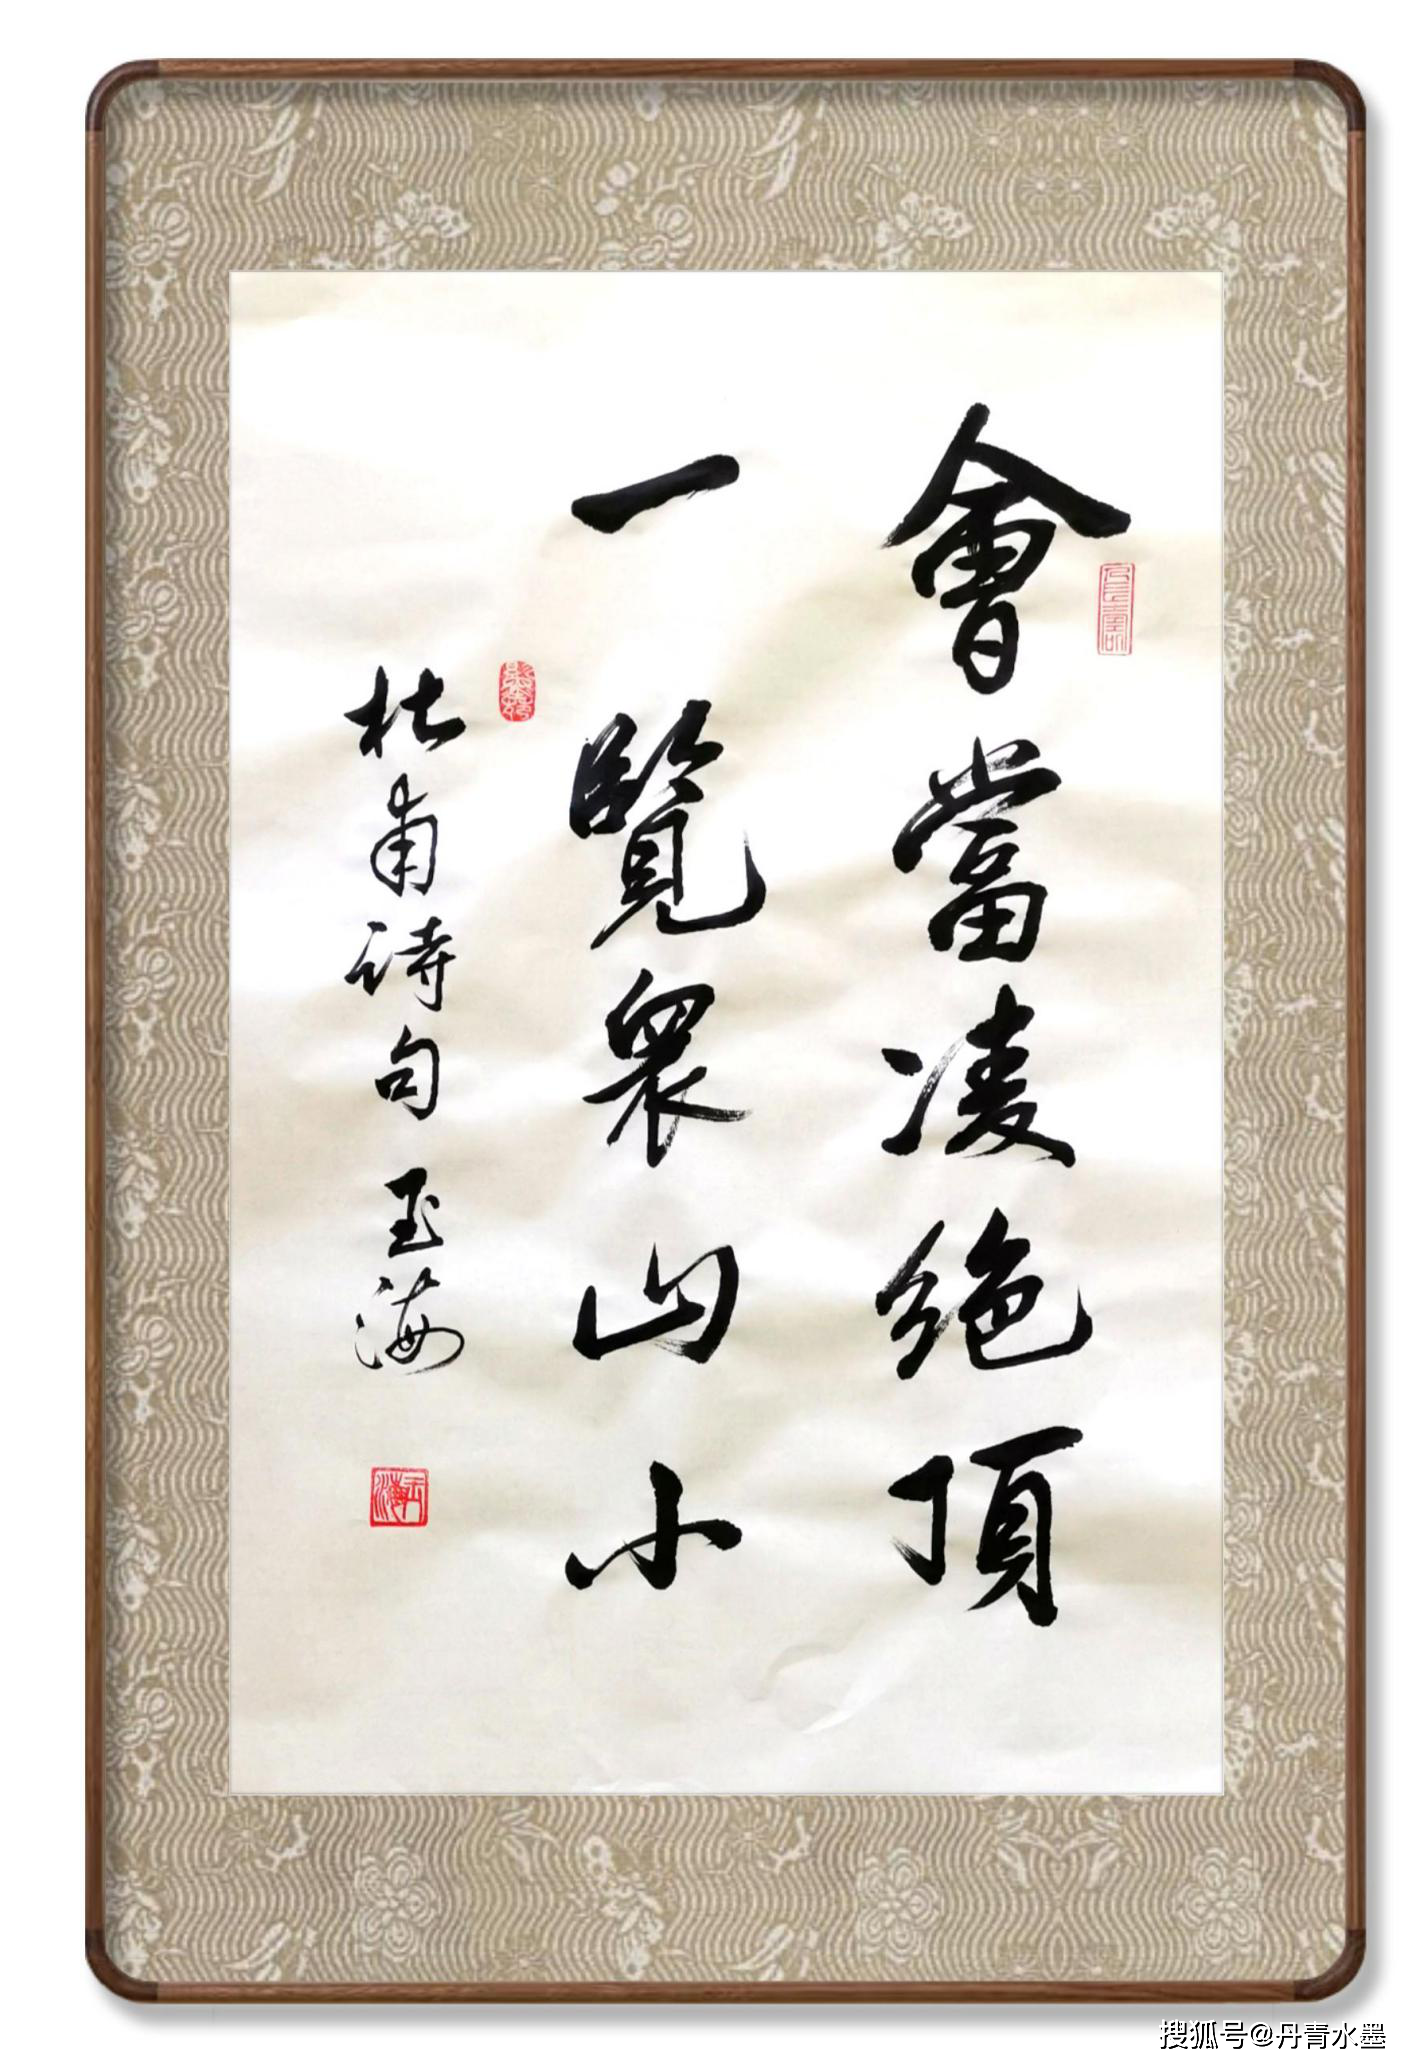 會當凌絕頂
一覽衆山小
杜甫诗句 玉海
玉海
搜狐号@丹青水墨